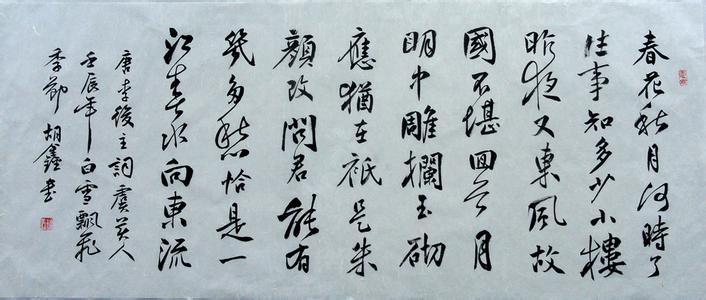 春花秋月何時了
往事知多少小樓
昨夜又東風故
國不堪回首月
明中雕欄玉砌
應猶在衹是朱
顏改問君能有
幾多愁恰是一
江春水向東流
唐李後主詞虞美人
壬辰年白雪飄飛
季節胡鑫書